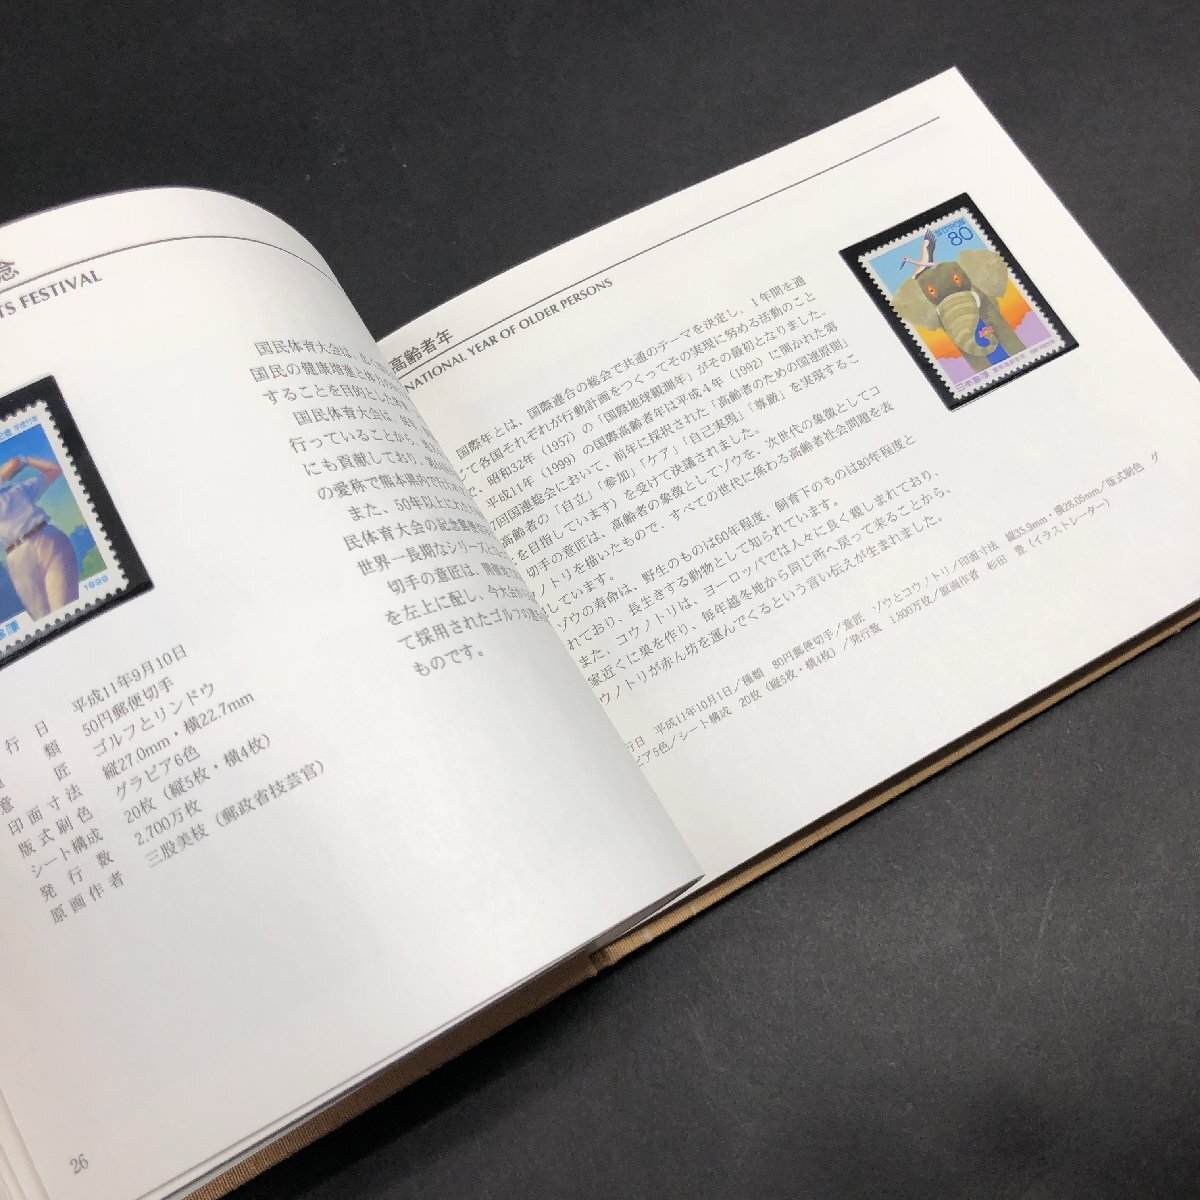 念
TS FESTIVAL
国民体育大会は、広く
国民の健康増進と体力の
することを目的とした
国民体育大会は、毎
行っていることから、地
にも貢献しており、第54
の愛称で熊本県内で行われ
また、50年以上にわたっ
民体育大会の記念郵便
世界一長期なシリーズとな
切手の意匠は、開催地
を左上に配し、今大会から
て採用されたゴルフの
ものです。
1999
行日 平成11年9月10日
類 50円郵便切手
意匠 ゴルフとリンドウ
印面寸法 縦27.0mm・横22.7mm
版式刷色 グラビア6色
シート構成 20枚(縦5枚・横4枚)
発行数 2,700万枚
原画作者 三股美枝(郵政省技芸官)
26
高齢者年
NATIONAL YEAR OF OLDER PERSONS
国際年とは、国際連合の総会で共通のテーマを決定し、1年間を通
じて各国それぞれが行動計画をつくってその実現に努める活動のこと
で、昭和32年(1957)の「国際地球観測年」がその最初となりました。
平成11年(1999)の国際高齢者年は平成4年(1992)に開かれた第
7回国連総会において、前年に採択された「高齢者のための国連原則」
高齢者の「自立」「参加」「ケア」「自己実現」「尊厳」を実現するこ
を目指しています)を受けて決議されました。
切手の意匠は、高齢者の象徴としてゾウを、次世代の象徴としてコ
ノトリを描いたもので、すべての世代に係わる高齢者社会問題を表
しています。
ゾウの寿命は、野生のものは60年程度、飼育下のものは80年程度と
れており、長生きする動物として知られています。
また、コウノトリは、ヨーロッパでは人々に良く親しまれており、
家近くに巣を作り、毎年越冬地から同じ所へ戻って来ることから、
ウノトリが赤ん坊を運んでくるという言い伝えが生まれました。
行日 平成11年10月1日/種類 80円郵便切手/意匠 ゾウとコウノトリ/印面寸法 縦33.9mm・横28.05mm/版式刷色 グ
ビア5色/シート構成 20枚(縦5枚・横4枚)/発行数 1,800万枚/原画作者 杉田 豊(イラストレーター)
NIPPON
80
日本郵便